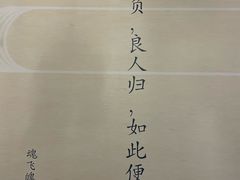 负，良人归，如此便
魂飞魄